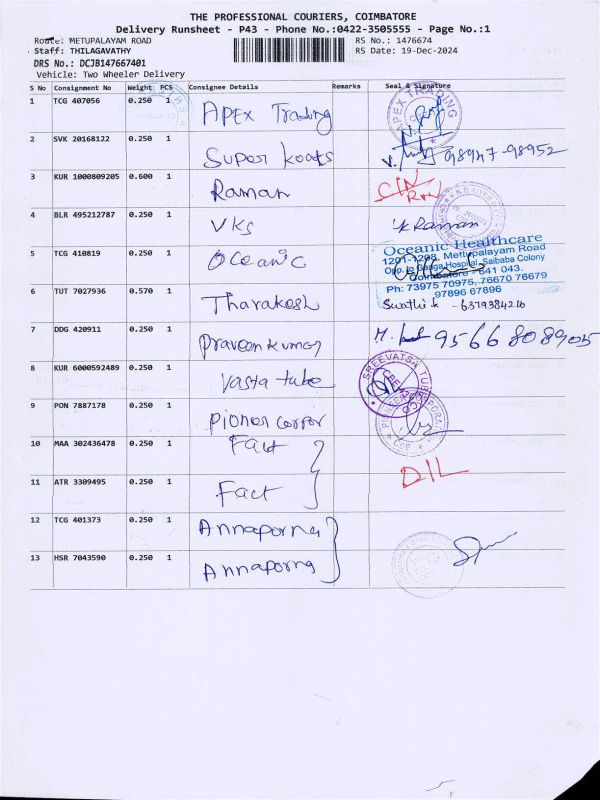 THE PROFESSIONAL COURIERS, COIMBATORE
Delivery Runsheet - P43 - Phone No.:0422-3505555 - Page No.:1
Route: METUPALAYAM ROAD RS No.: 1476674
Staff: THILAGAVATHY RS Date: 19-Dec-2024
DRS No.: DCJB147667401
Vehicle: Two Wheeler Delivery
S No Consignment No Weight PCS Consignee Details Remarks Seal & Signature
1 TCG 407056 0.250 1 APEX Trading APEX TRADING
2 SVK 20168122 0.250 1 Super koats 98947-98952
3 KUR 1000809205 0.600 1 Raman
4 BLR 495212787 0.250 1 VKS Raman
5 TCG 410819 0.250 1 Oceanic
Oceanic Healthcare
1201-1208, Mettupalayam Road
Opp. to Ganga Hospital, Saibaba Colony
Coimbatore - 641 043.
Ph: 73975 70975, 76670 76679
97896 67896
6 TUT 7027936 0.570 1 Tharakesh Swathi k - 6379384216
7 DDG 420911 0.250 1 Praveen kumar 9566808905
8 KUR 6000592489 0.250 1 Vasta tube SREEVATSA TUBE
9 PON 7887178 0.250 1 Pioner corpor
10 MAA 302436478 0.250 1 Fact
11 ATR 3309495 0.250 1 Fact DIL
12 TCG 401373 0.250 1 Annaporna
13 HSR 7043590 0.250 1 Annaporna